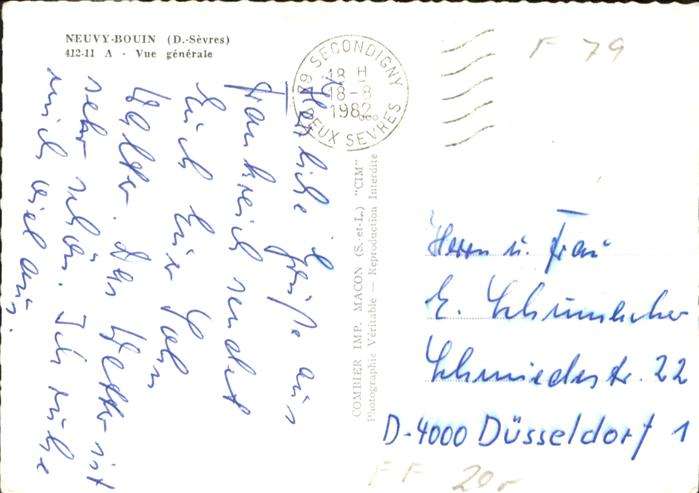 NEUVY-BOUIN (D.-Sèvres)
412-11 A - Vue générale
79 SECONDIGNY
18 H
18-8
1982
DEUX SEVRES
F 79
Herzliche Grüße aus
Frankreich sendet
Euch Euer Sohn
Walter. Das Wetter ist
sehr schön. Ich ruhe
mich viel aus.
COMBIER IMP. MACON (S.-et-L.) "CIM"
Photographie Véritable — Reproduction Interdite
Herrn u. Frau
E. Schumacher
Schmiedestr. 22
D-4000 Düsseldorf 1
FF 20